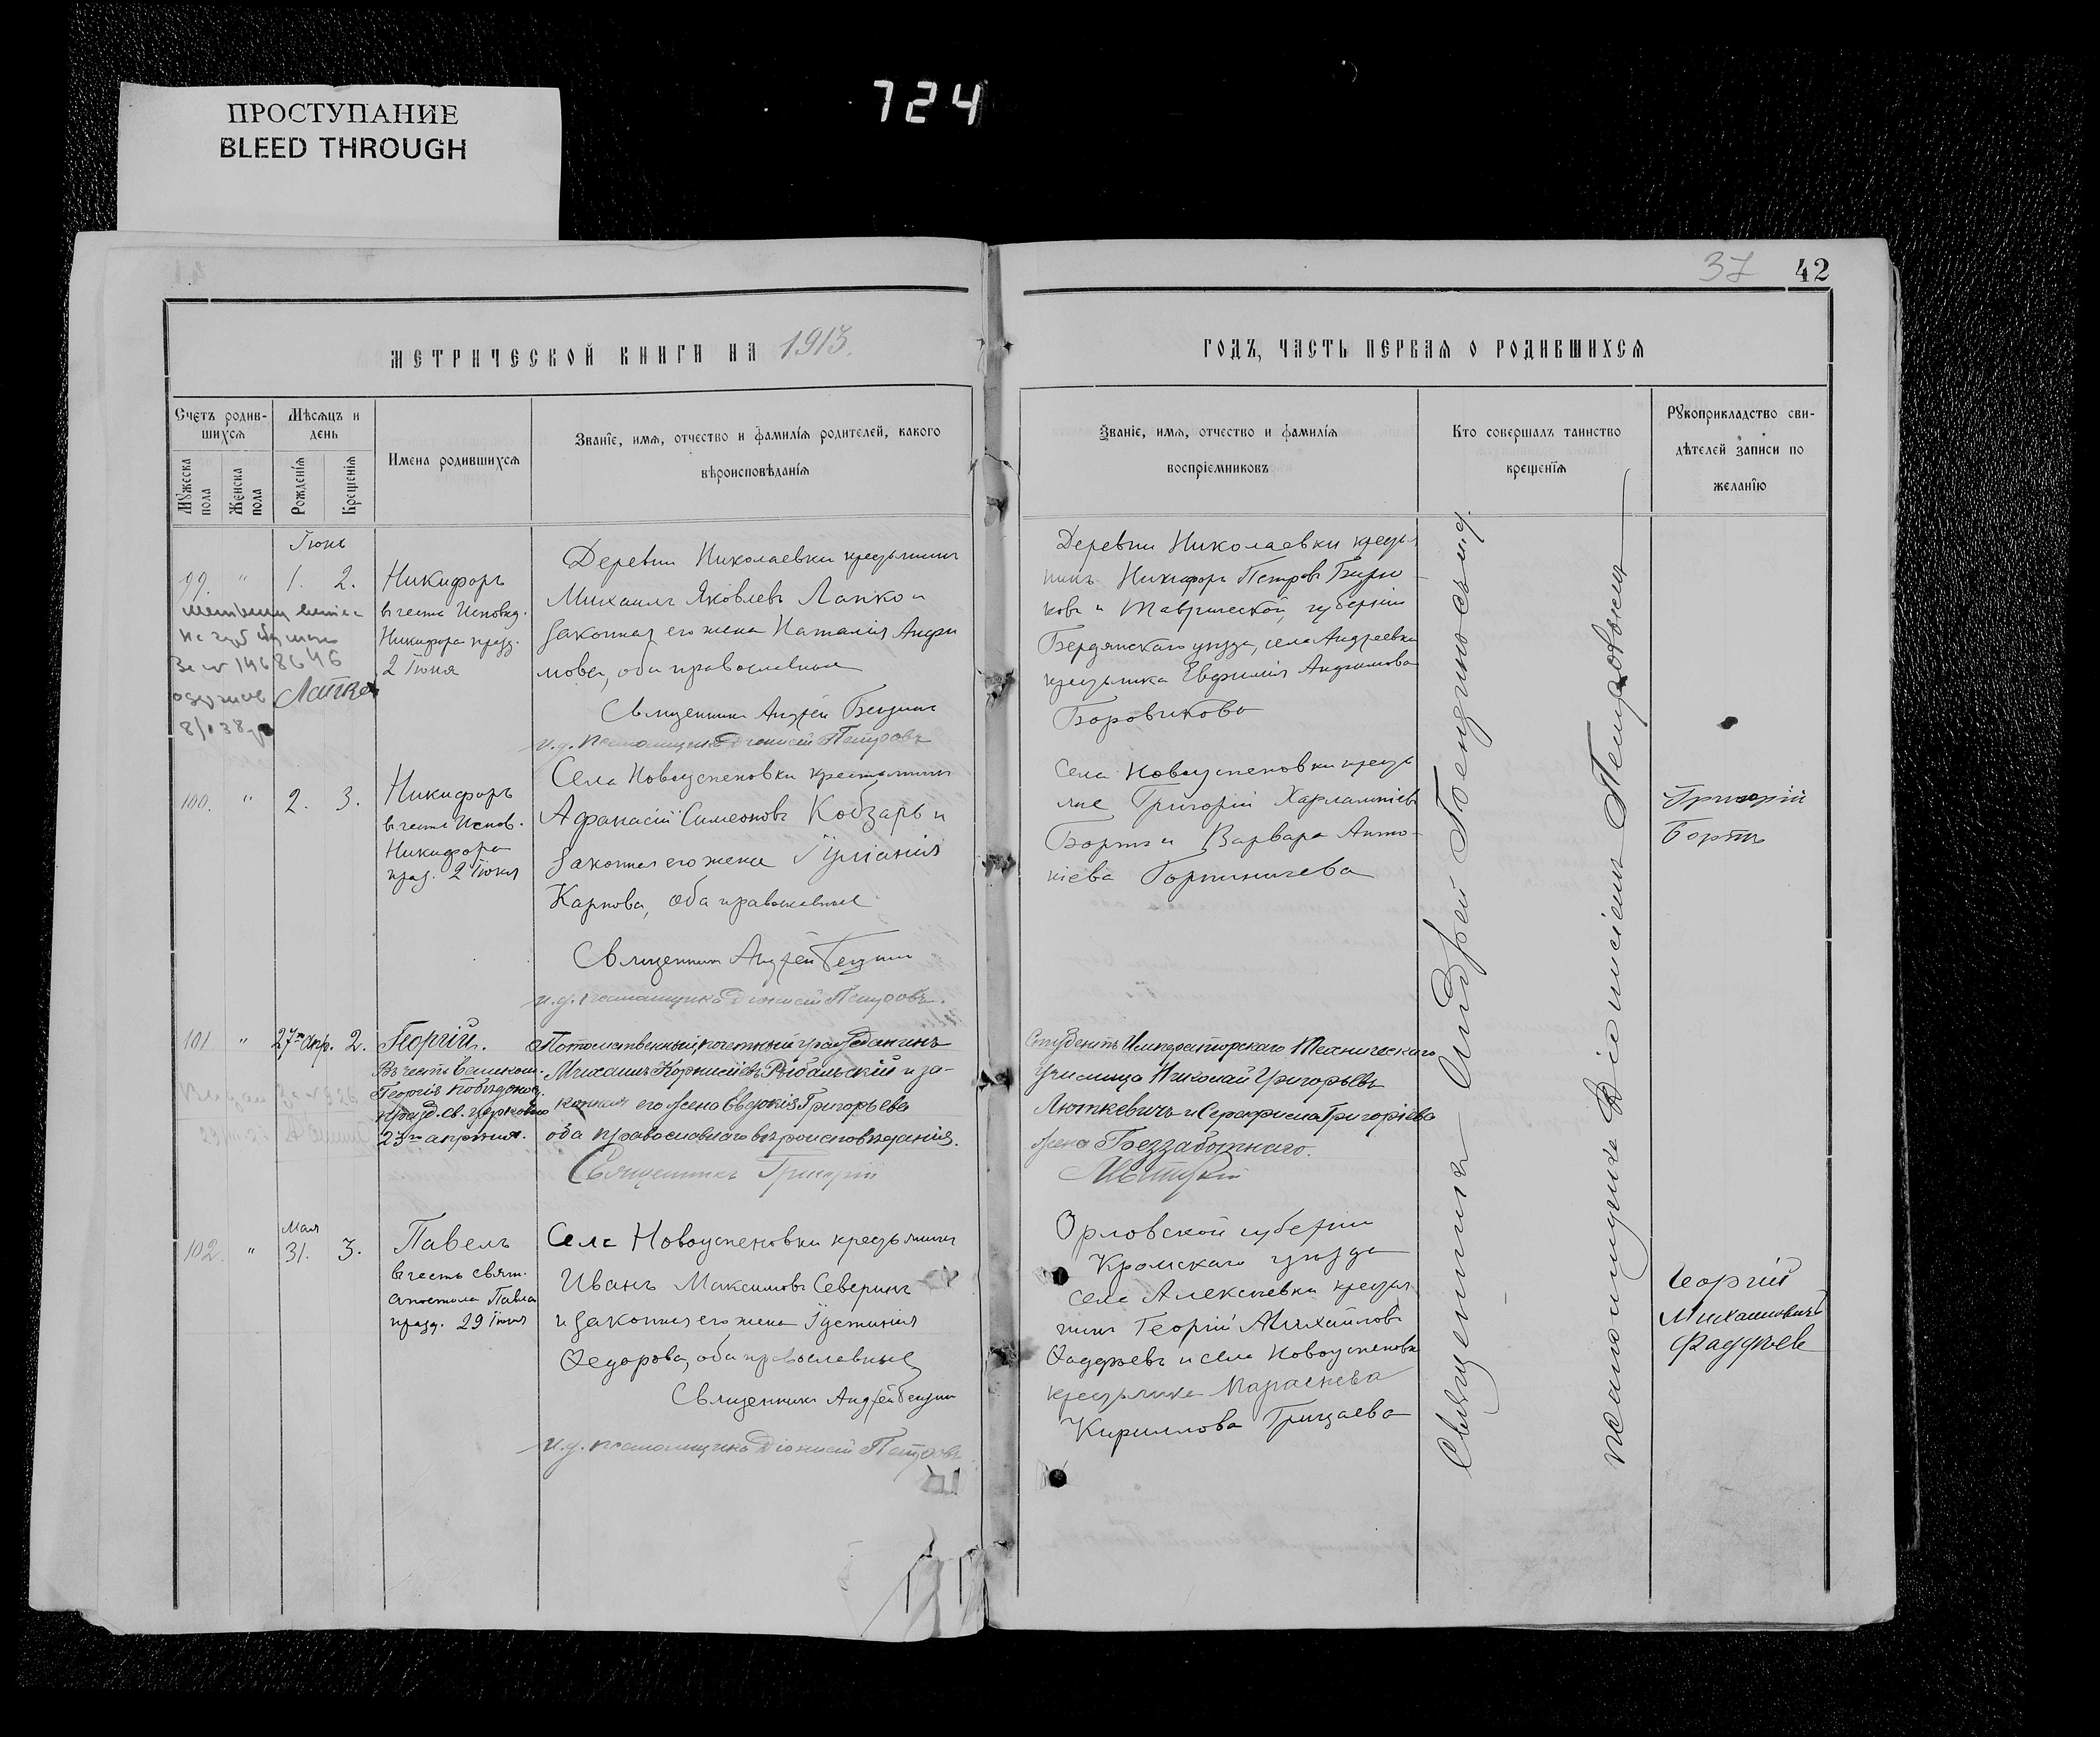 ПРОСТУПАНИЕ
BLEED THROUGH
724
37 42
МЕТРИЧЕСКОЙ КНИГИ НА 1913.
ГОДЪ, ЧАСТЬ ПЕРВАЯ О РОДИВШИХСЯ
Счетъ родив-
шихся
Мѣсяцъ и
день
Мужеска
пола
Женска
пола
Рожденія
Крещенія
Имена родившихся
Званіе, имя, отчество и фамилія родителей, какого
вѣроисповѣданія
Званіе, имя, отчество и фамилія
воспріемниковъ
Кто совершалъ таинство
крещенія
Рукоприкладство сви-
дѣтелей записи по
желанію
Іюнь
99. " 1. 2.
Никифоръ
в честь Исповѣд.
Никифора празд.
2 Іюня
За № 1468646
Лапко
Деревни Николаевки крестьянинъ
Михаилъ Яковлевъ Лапко и
законная его жена Наталія Анфи
мова, оба православные
Священникъ Андрей
и.д. псаломщика Діонисій Петровъ
Деревни Николаевки кресть
нинъ Никифоръ Петровъ
ковъ и Таврической губерніи
Бердянскаго уѣзда, села Андреевки
крестьянка Евфимія
Боровикова
100. " 2. 3.
Никифоръ
в честь Испов.
Никифора
праз. 2 Іюня
Села Новоуспеновки крестьянинъ
Афанасій Симеоновъ Кобзарь и
законная его жена Іуліанія
Карпова, оба православные
Священникъ Андрей
и.д. псаломщика Діонисій Петровъ.
Села Новоуспеновки кресть
яне Григорій Харлампіевъ
Бортъ и Варвара Анто-
ніева
Григорій
Бортъ
101 " 27го Апр. 2.
Георгій.
Въ честь Великом.
Георгія Побѣдонос.
празд. св. церковію
23го апрѣля.
Потомственный почетный гражданинъ
Михаилъ Корниліевъ Рыбальскій и за-
конная его жена Евдокія Григорьева
оба православнаго вѣроисповѣданія.
Священникъ Григорій
Студентъ Императорскаго Техническаго
училища Николай Григорьевъ
Люткевичъ и Серафима Григоріева
жена Беззаботнаго.
Мая
102. " 31. 3.
Павелъ
в честь свят.
апостола Павла
празд. 29 Іюня
Села Новоуспеновки крестьянинъ
Иванъ Максимовъ Северинъ
и законная его жена Іустинія
Федорова, оба православные
Священникъ Андрей
и.д. псаломщика Діонисій Петровъ
Орловской губерніи
Кромскаго уѣзда
села Алексѣевки крестья
нинъ Георгій Михайловъ
Фаддѣевъ и села Новоуспеновки
крестьянка Параскева
Кириллова Грицаева
Георгій
Михайловичъ
Фаддѣевъ
Священникъ Андрей съ и.д.
псаломщика Діонисіемъ Петровымъ